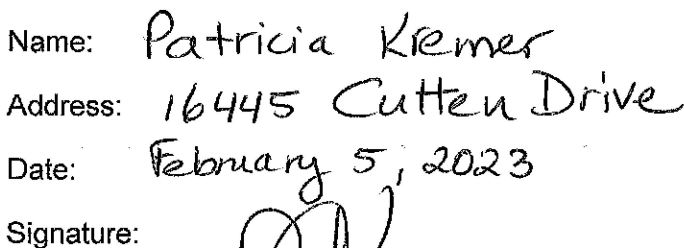 Name: Patricia Kremer
Address: 16445 Cutten Drive
Date: February 5, 2023
Signature: